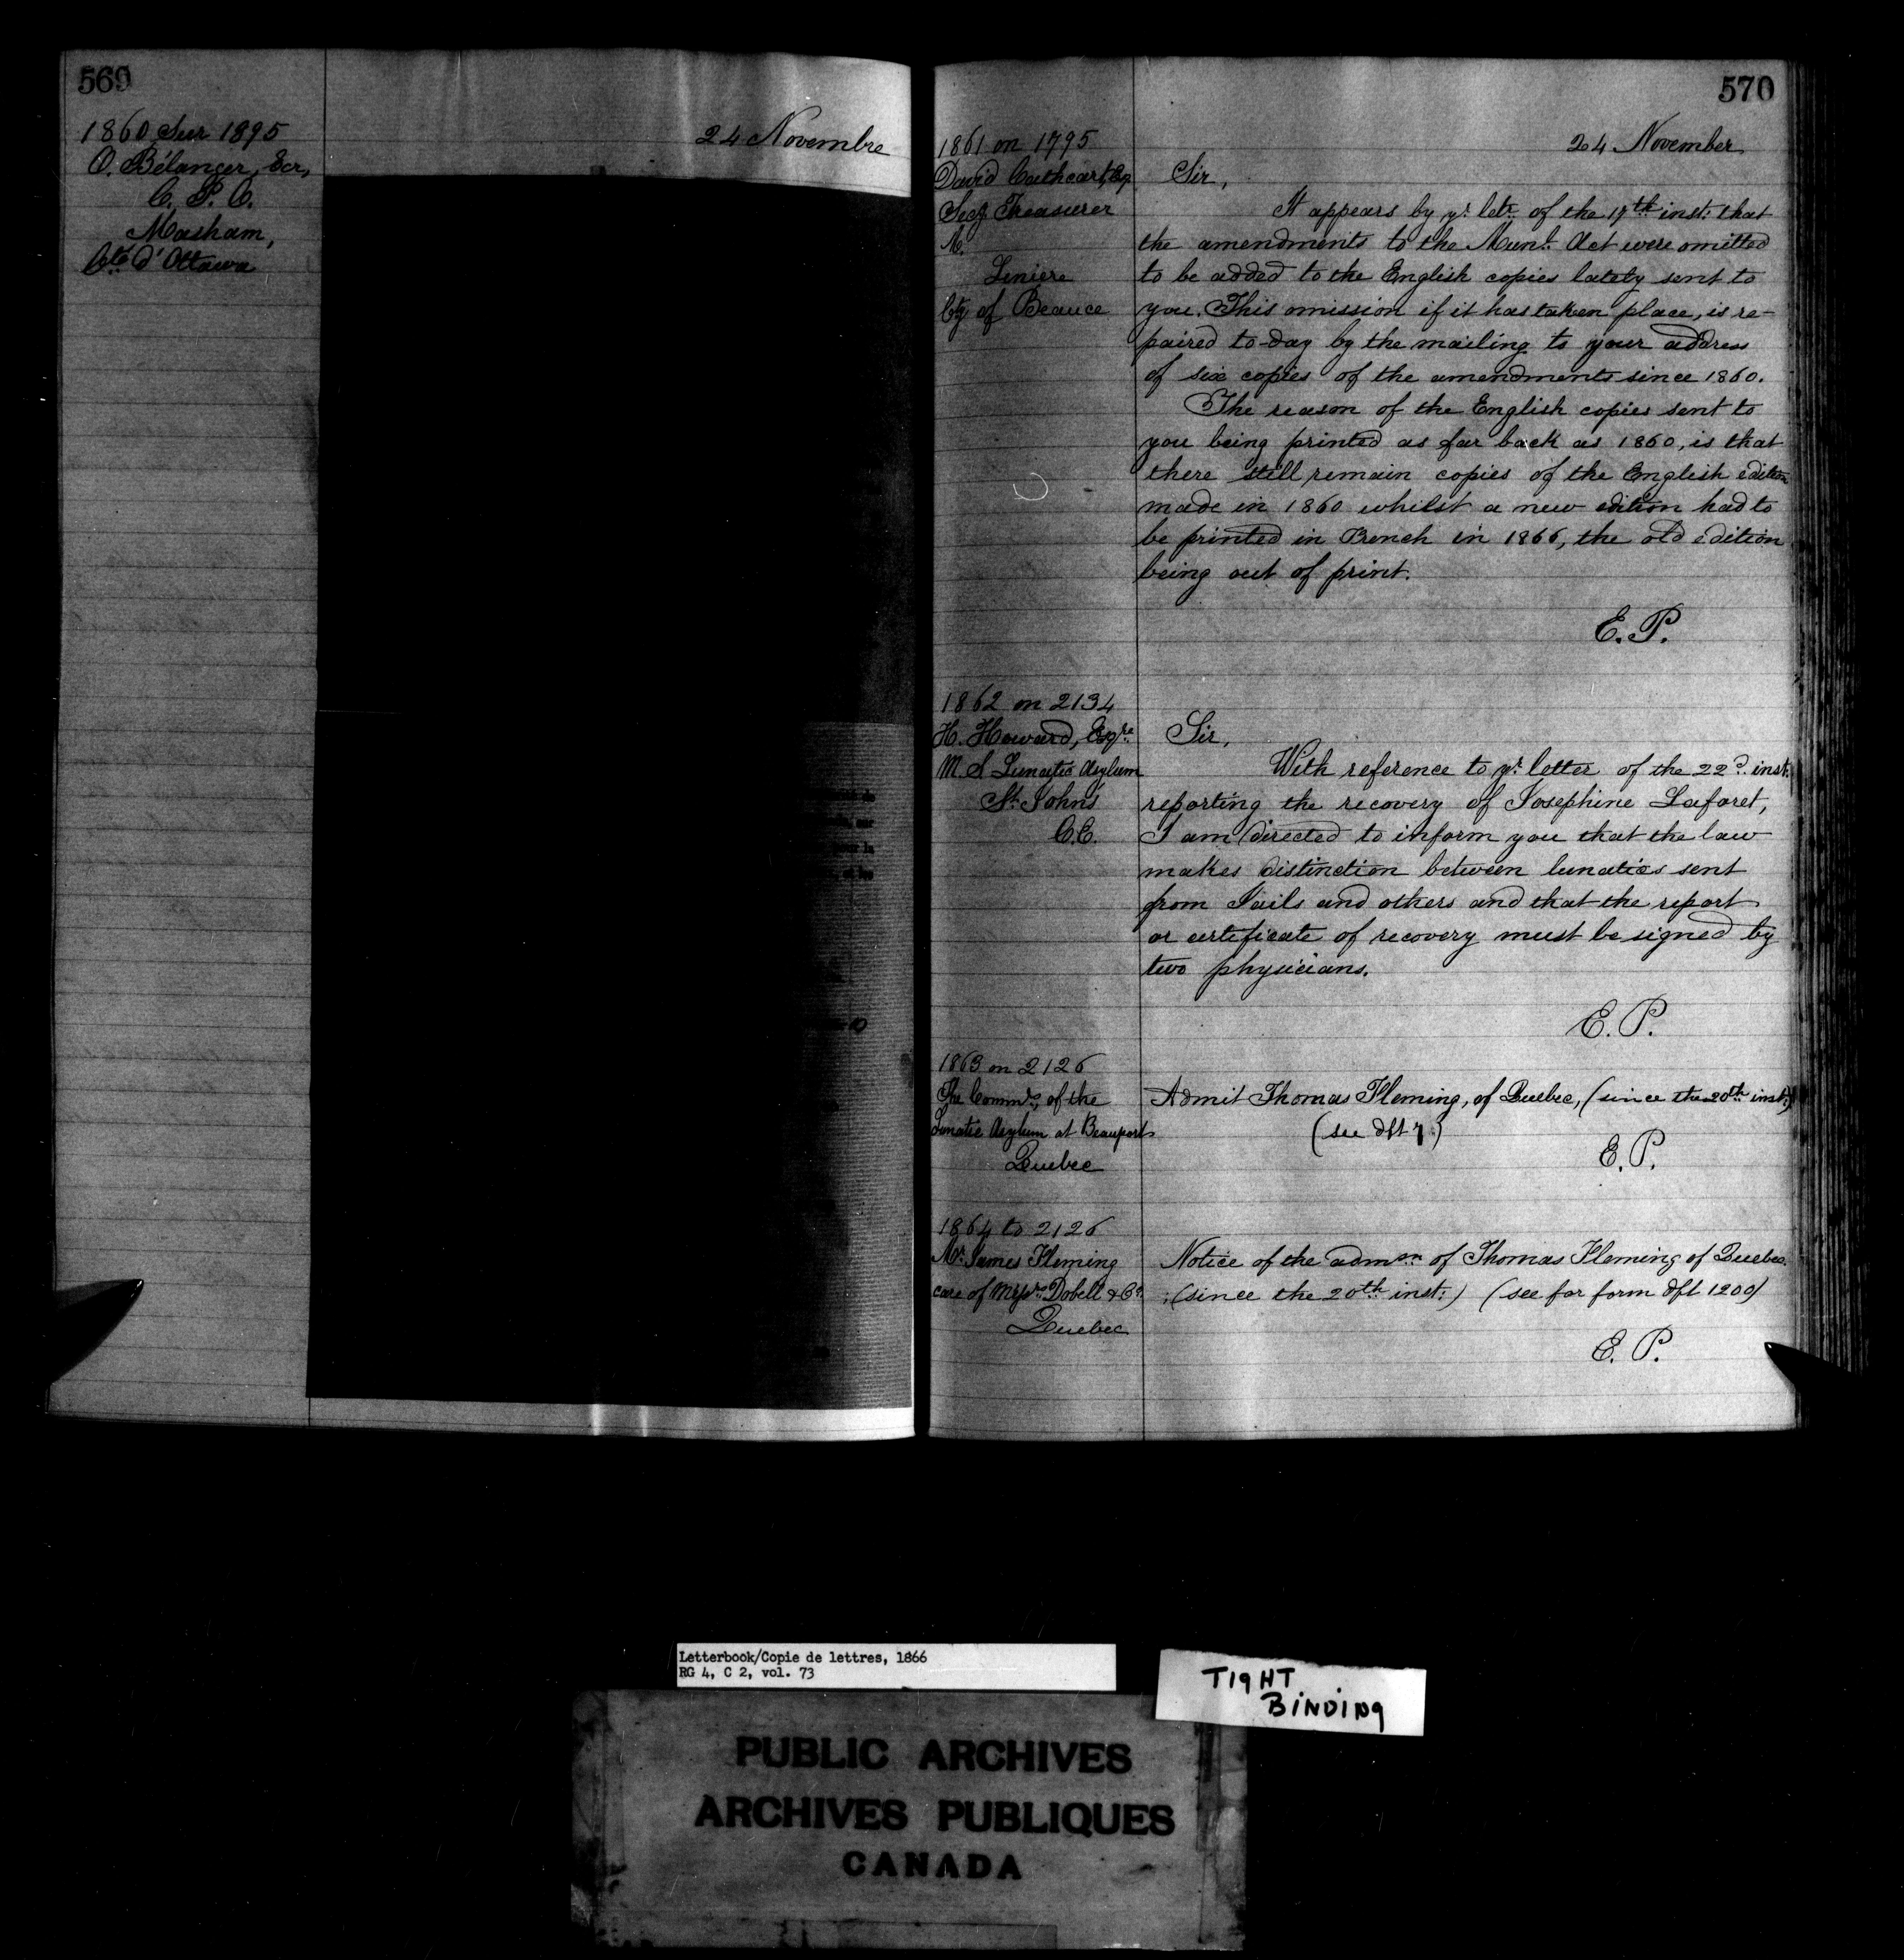 569
1860 Sur 1895
O. Bélanger, Ecr,
C. S. C.
Masham,
Cté d'Ottawa
24 Novembre
570
24 November
1861 on 1795
David Cathcart, Esq
Secy Treasurer
M.
Liniere
Cty of Beauce
Sir,
It appears by yr. letr. of the 17th inst: that
the amendments to the Munl. Act were omitted
to be added to the English copies lately sent to
you. This omission if it has taken place, is re-
paired to-day by the mailing to your address
of six copies of the amendments since 1860.
The reason of the English copies sent to
you being printed as far back as 1860, is that
there still remain copies of the English edition
made in 1860 whilst a new edition had to
be printed in French in 1866, the old edition
being out of print.
E. P.
1862 on 2134
H. Howard, Esqre.
M. S Lunatic Asylum
St. Johns
C.E.
Sir,
With reference to yr. letter of the 22d. inst:
reporting the recovery of Josephine Laforet,
I am directed to inform you that the law
makes distinction between lunatics sent
from Jails and others and that the report
or certificate of recovery must be signed by
two physicians.
E. P.
1863 on 2126
The Commrs. of the
Lunatic Asylum at Beauport
Quebec
Admit Thomas Fleming, of Quebec, (since the 20th inst:)
(see dft 7.)
E. P.
1864 to 2126
Mr. James Fleming
care of Messrs. Dobell & Co.
Quebec
Notice of the admon of Thomas Fleming of Quebec
(since the 20th inst:) (see for form dft 1200)
E. P.
Letterbook/Copie de lettres, 1866
RG 4, C 2, vol. 73
TIGHT
BINDING
PUBLIC ARCHIVES
ARCHIVES PUBLIQUES
CANADA